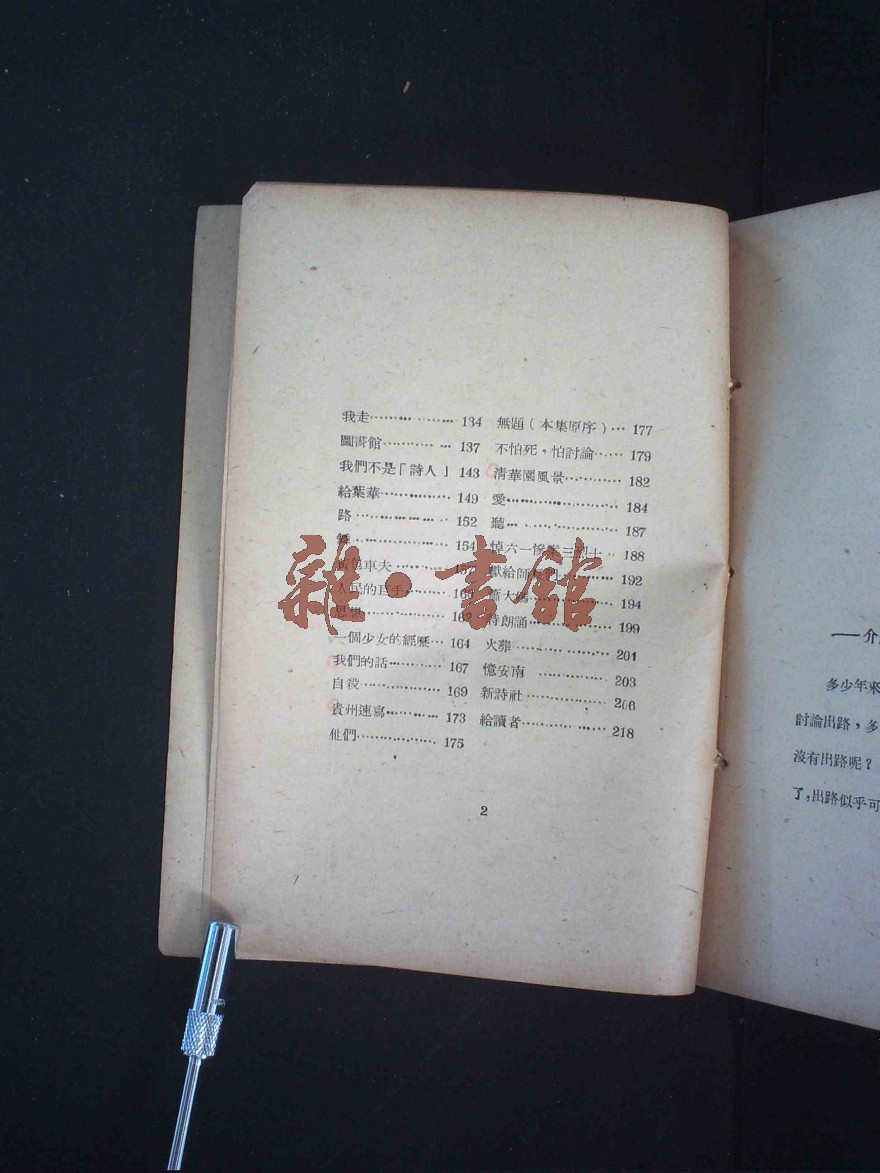 我走……………… 134
圖書館………… … 137
我們不是「詩人」 143
給葉華…………… 149
路 …………… 152
154
包車夫
人民的
思想 162
一個少女的經歷… 164
我們的話………… 167
自殺…………… 169
貴州速寫………… 173
他們……………… 175
無題（本集原序）… 177
不怕死，怕討論…… 179
清華園風景………… 182
愛………………… 184
聽… …………… 187
悼六一慘案三烈士 188
獻給師 192
大 194
詩朗誦…………… 199
火葬…………… 201
憶安南 ………… 203
新詩社…………… 206
給讀者…………… 218
2
——介
多少年來
討論出路，多
沒有出路呢？
了，出路似乎可
雜·書館